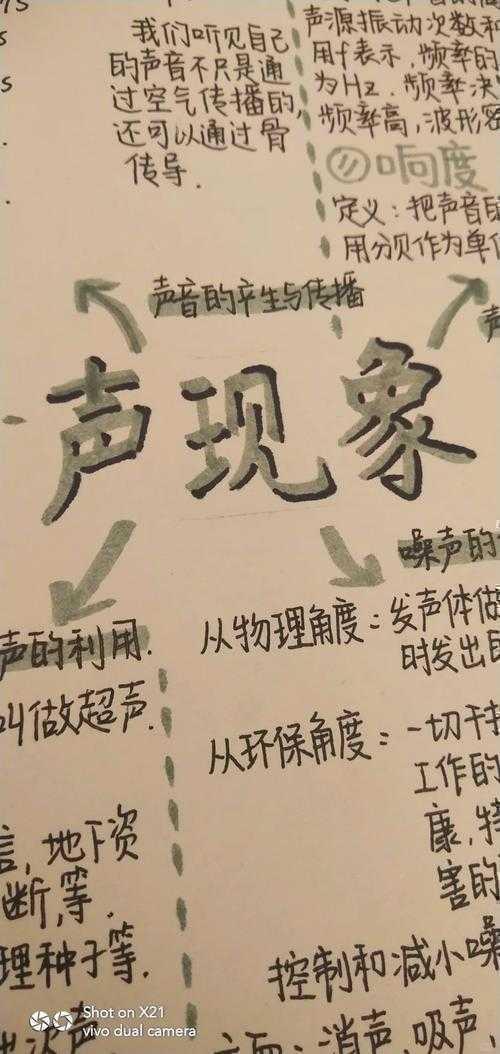 我们听见自己
的声音不只是通
过空气传播的,
还可以通过骨
传导.
声源振动次数和
用f表示,频率的
为Hz.频率决
频率高,波形密
响度
定义:把声音
用分贝作为单位
声音的产生与传播
声现象
声的利用.
叫做超声.
地下资
断,等.
理种子等.
噪声的
从物理角度:发声体做
时发出
从环保角度:一切干扰
工作的
康,特
害的
控制和减小噪
方面:消声,吸声,
Shot on X21
vivo dual camera